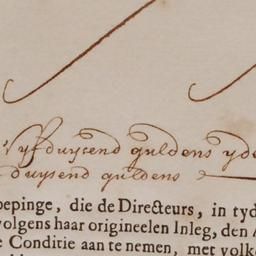 Vyfduysend guldens yde
duysend guldens
epinge, die de Directeurs, in tyd
volgens haar origineelen Inleg, den
Conditie aan te nemen, met volk